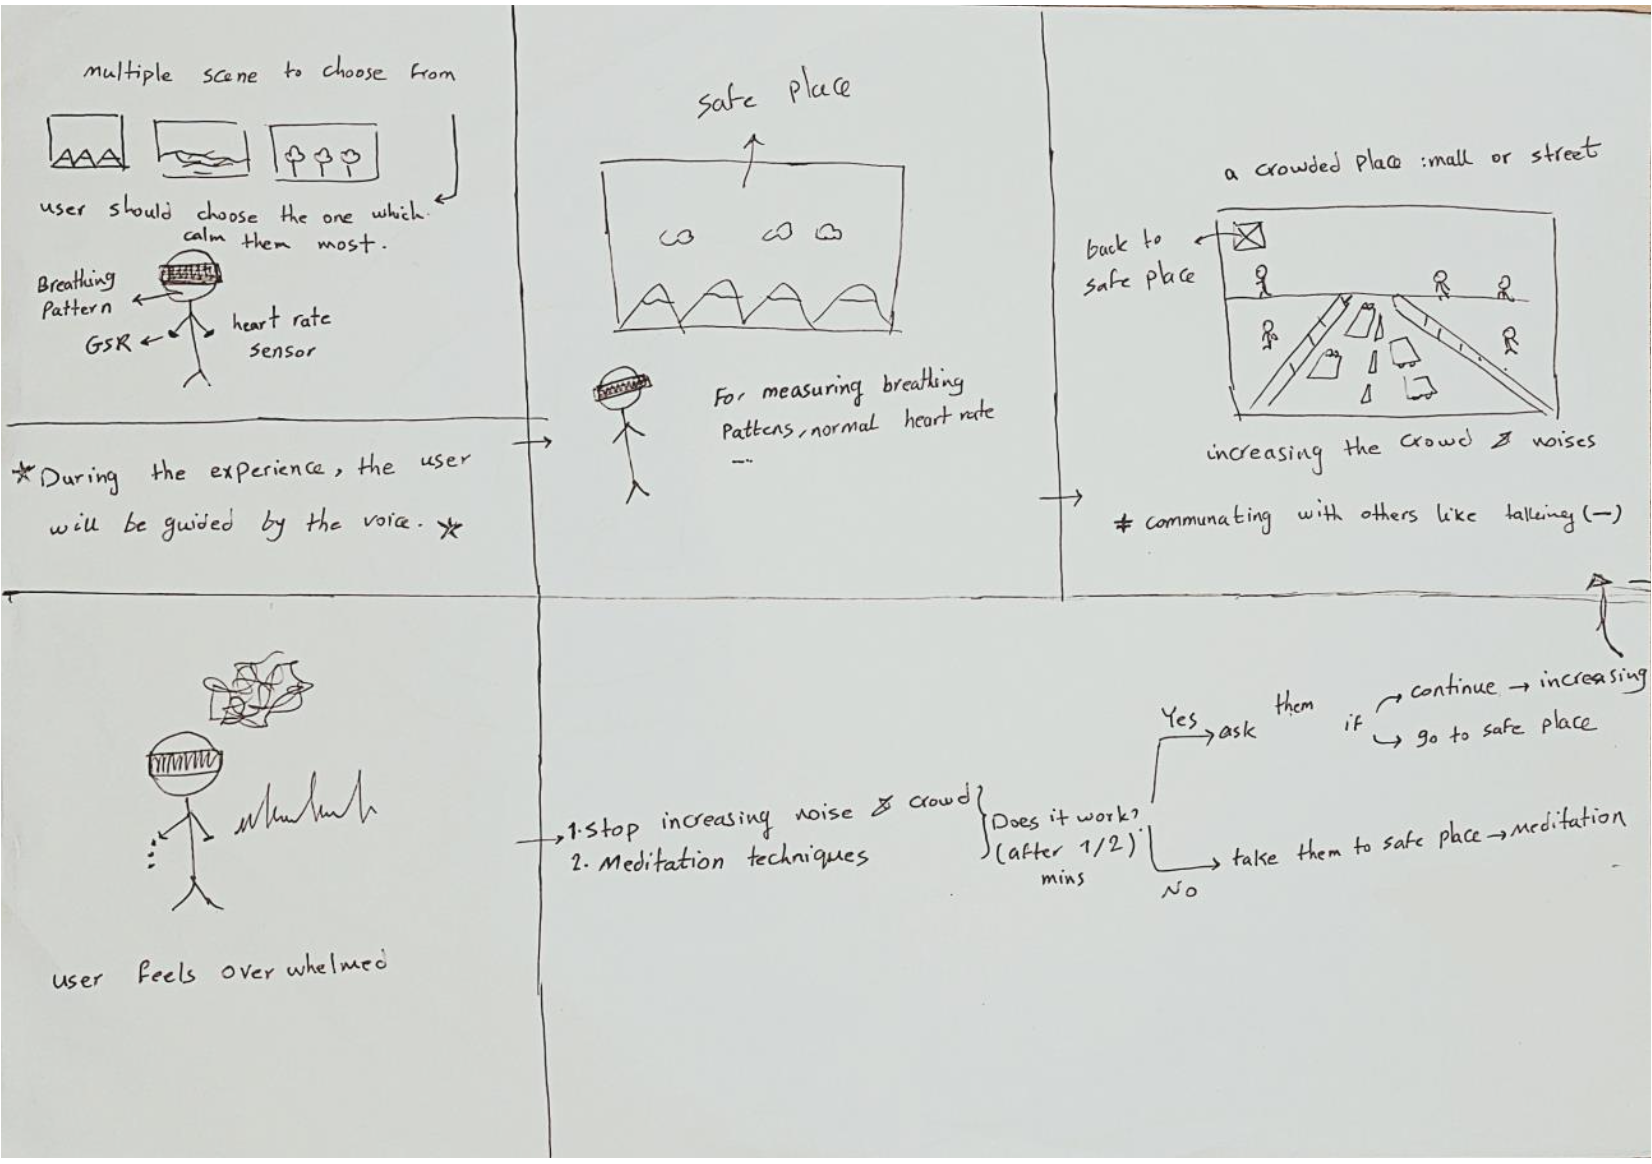 multiple scene to choose from
user should choose the one which
calm them most.
Breathing
Pattern
GSR
heart rate
sensor
*During the experience, the user
will be guided by the voice. *
safe place
For measuring breathing
Pattens, normal heart rate
...
a crowded place :mall or street
back to
safe place
increasing the crowd & noises
* communating with others like talking (—)
user feels over whelmed
1. Stop increasing noise & crowd
2. Meditation techniques
Does it work?
(after 1/2)
mins
Yes
ask them if
continue → increasing
go to safe place
No
take them to safe place → meditation